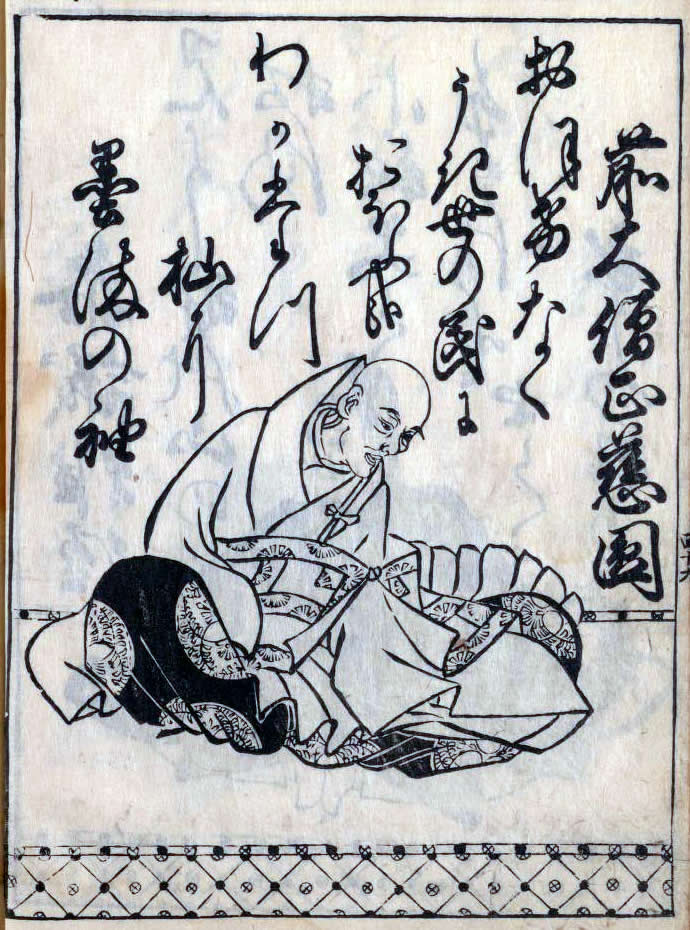 前大僧正慈圓
おほけなく
うき世の民に
おほふ哉
わかたつ
杣に
墨染の袖